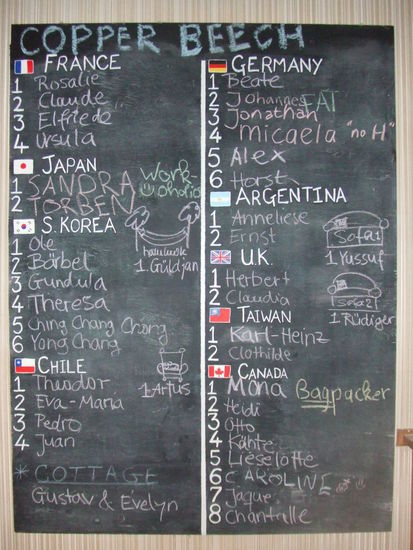 COPPER BEECH
FRANCE
1 Rosalie
2 Claude
3 Elfriede
4 Ursula
JAPAN
1 SANDRA
2 TORBEN
Work-
oholic
S. KOREA
1 Ole
2 Bärbel
3 Gundula
4 Theresa
5 Ching Chang Chang
6 Yong Chang
hammock
1. Güldjan
CHILE
1 Theodor
2 Eva-Maria
3 Pedro
4 Juan
1. Artus
* COTTAGE
Gustav & Evelyn
GERMANY
1 Beate
2 Johannes EAT
3 Jonathan
4 Micaela "no H"
5 Alex
6 Horst
ARGENTINA
1 Anneliese
2 Ernst
Sofa 1
1. Yussuf
U.K.
1 Herbert
2 Claudia
Sofa 2
1. Rüdiger
TAIWAN
1 Karl-Heinz
2 Clothilde
CANADA
1 Mona Bagpacker
2 Heidi
3 Otto
4 Käthe
5 Lieselotte
6 CAROLINE
7 Jaque
8 Chantalle